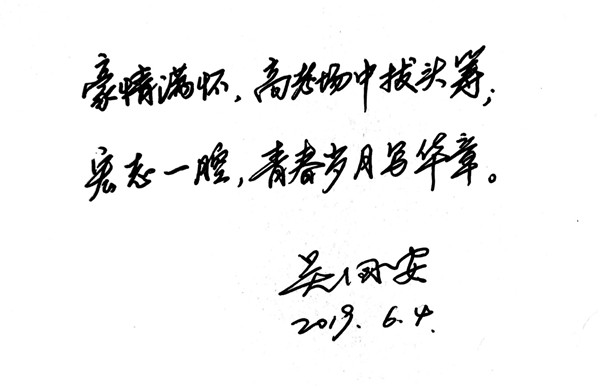 豪情满怀，高考场中拔头筹；
宏志一腔，青春岁月写华章。
吴国安
2019.6.4.